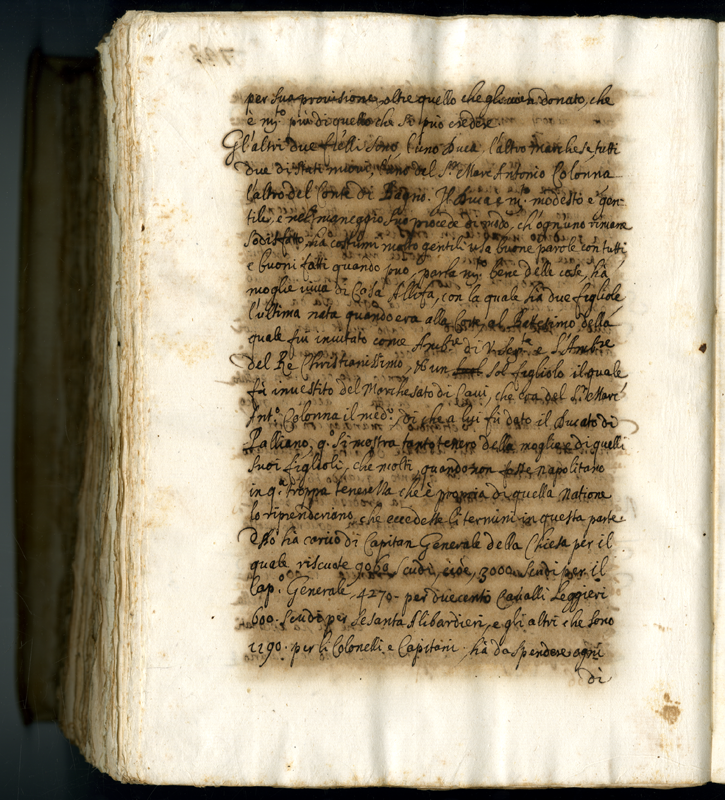 per sua provisione, oltre quello che gli vien donato, che
è m.to più di quello che si può credere.
Gl'altri due fr'elli sono l'uno Duca l'altro Marchese, tutti
due di stati nuovi, l'uno del S.r Marc'Antonio Colonna
l'altro del Conte di Bagno. Il Duca è m.to modesto e gen-
tile, e nel maneggio suo procede di modo, ch'ogn'uno rimane
sodisfatto, ha costumi molto gentili usa buone parole con tutti
e buoni fatti quando può, parla m.to bene delle cose, hà
moglie viva di Casa Allifa, con la quale hà due figliole
l'ultima nata quando era alla Corte, al Battesimo della
quale fui invitato come Amb.re di V. Ser.ta e l'Amb.re
del Re Christianissimo, et un sol figliolo il quale
fù investito del Marchesato di Cavi, che era del S.r Marc'
Ant.o Colonna il med.o, di che a lui fù dato il Ducato di
Palliano, q.o si mostra tanto tenero della moglie e di quelli
suoi figlioli, che molti, quando non fosse napolitano
in q.a troppa tenerezza che è propria di quella natione
lo riprenderiano, che eccedesse li termini in questa parte
Esso hà carico di Capitan Generale della Chiesa per il
quale riscuote 9060 scudi, cioè, 3000 scudi per il
Cap.o Generale, 4270 per duecento Cavalli Leggieri
600 scudi per sesanta Alibardieri, e gli altri che sono
1190. per li Colonelli e Capitani, hà da spendere ogni
di